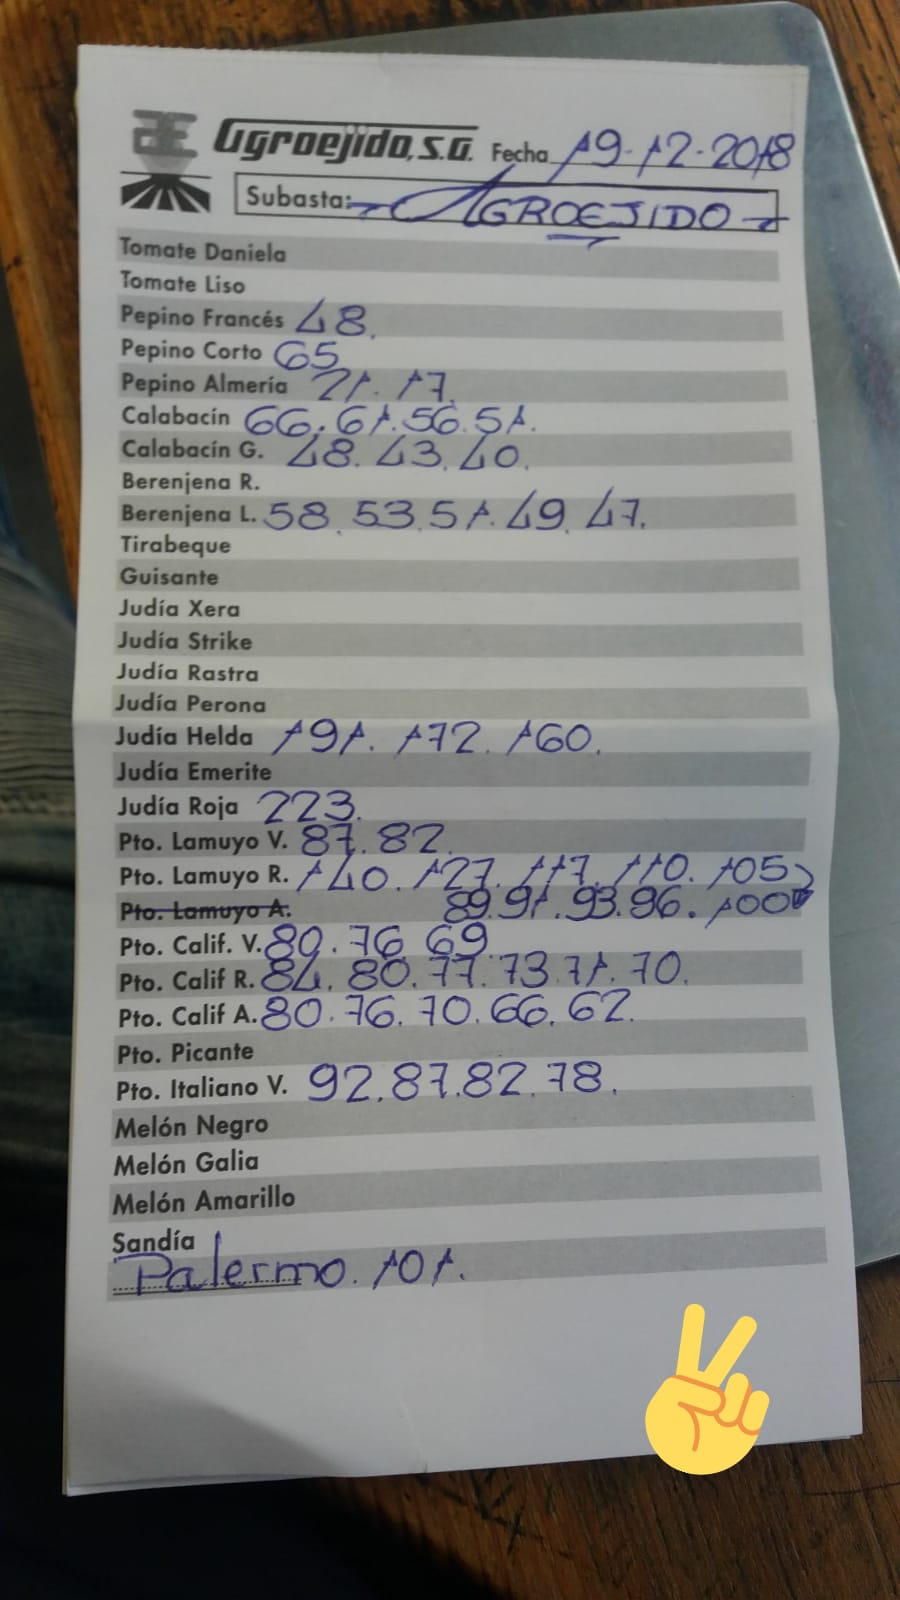 Agroejido, S.A. Fecha 19-12-2018
Subasta: AGROEJIDO
Tomate Daniela
Tomate Liso
Pepino Francés 48.
Pepino Corto 65
Pepino Almería 21. 17.
Calabacín 66. 61. 56. 51.
Calabacín G. 48. 43. 40.
Berenjena R.
Berenjena L. 58. 53. 51. 49. 47.
Tirabeque
Guisante
Judía Xera
Judía Strike
Judía Rastra
Judía Perona
Judía Helda 191. 172. 160.
Judía Emerite
Judía Roja 223.
Pto. Lamuyo V. 87. 82.
Pto. Lamuyo R. 140. 127. 117. 110. 105
Pto. Lamuyo A. 89. 91. 93. 96. 100
Pto. Calif. V. 80. 76. 69
Pto. Calif R. 84. 80. 77. 73. 71. 70.
Pto. Calif A. 80. 76. 70. 66. 62.
Pto. Picante
Pto. Italiano V. 92. 87. 82. 78.
Melón Negro
Melón Galia
Melón Amarillo
Sandía
Palermo. 101.